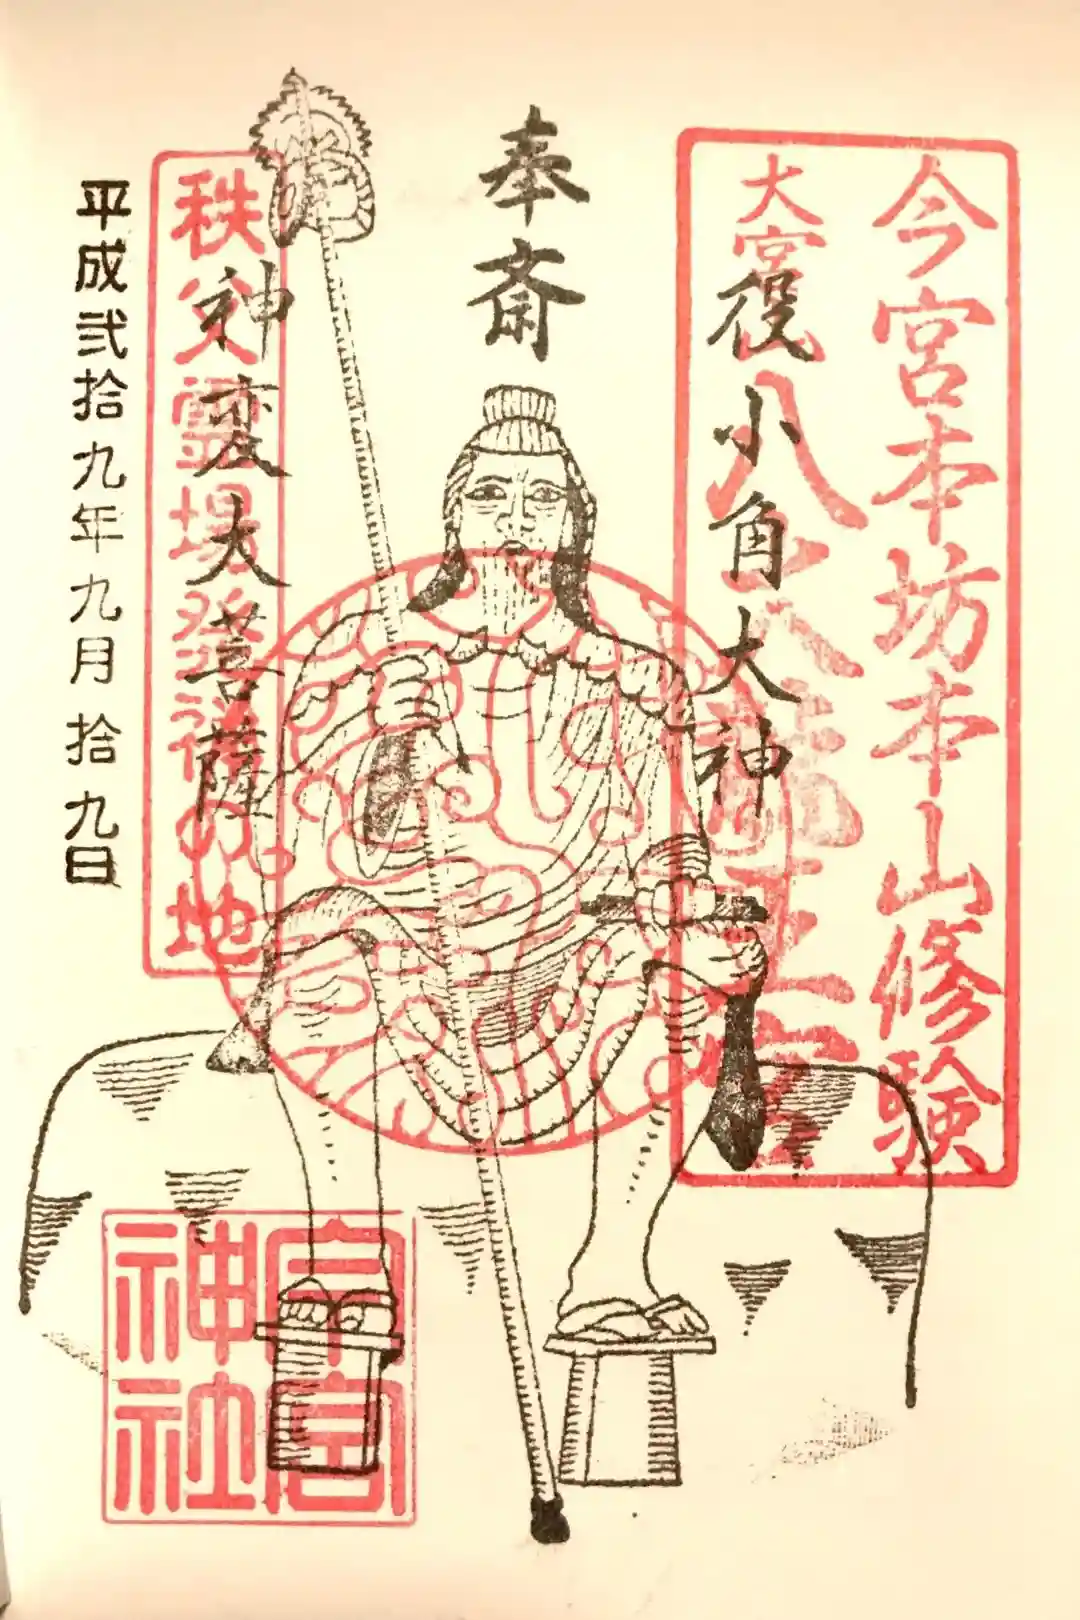 今宮本坊本山修験
大宮山八大龍王宮
役小角大神
奉斎
神変大菩薩
秩父霊場発祥の地
平成弐拾九年九月拾九日
今宮
神社